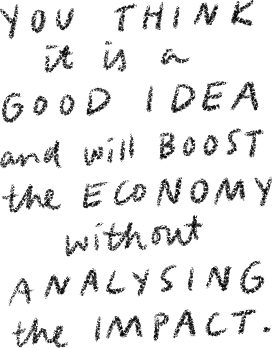 YOU THINK
it is a
GOOD IDEA
and will BOOST
the ECONOMY
without
ANALYSING
the IMPACT.